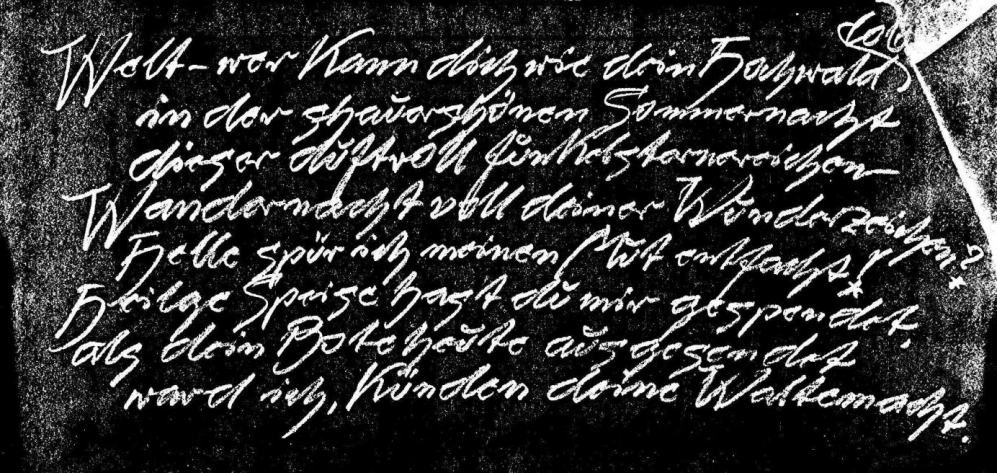 Welt – wer kann dich wie dein Hochwald
in der schauerschönen Sommernacht
dieser duftvoll funkelsternereichen
Wandernacht voll deiner Wunderzeichen?
Helle spür ich meinen Mut entfacht!
Heilge Speise hast du mir gespendet,
als dein Bote heute ausgesendet
ward ich, künden deine Waltemacht.